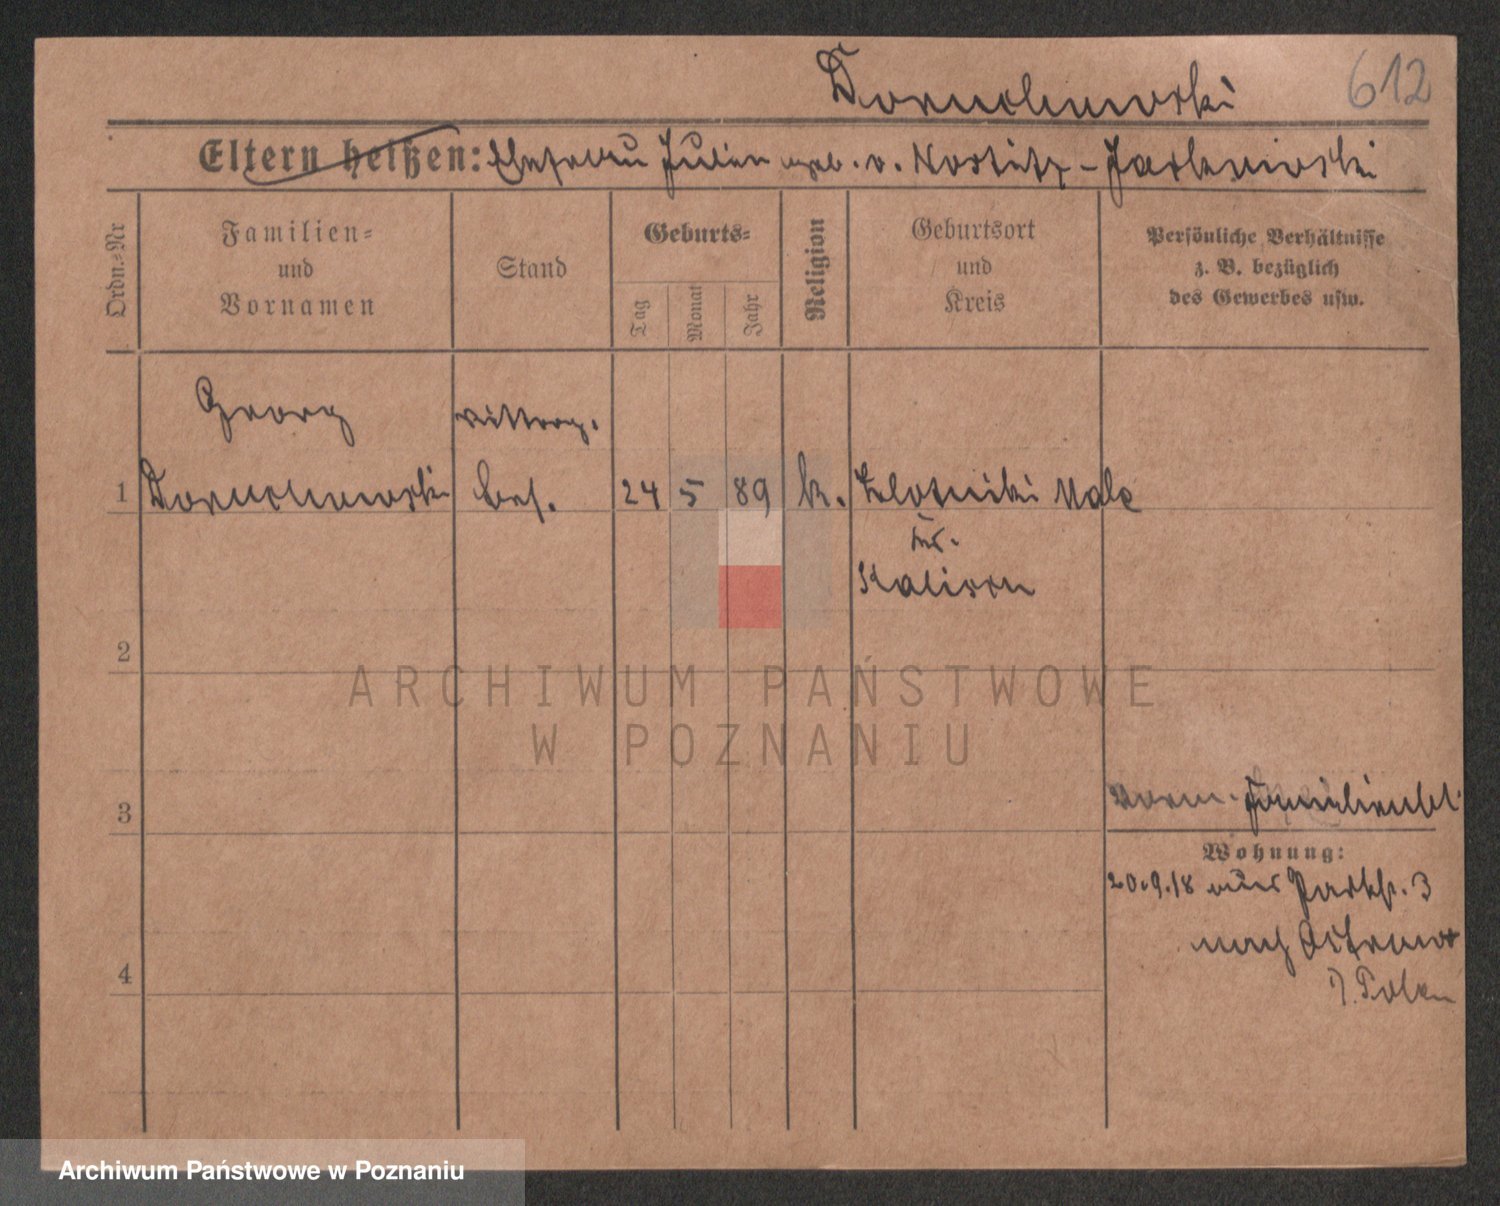 Doruchowski 612
Eltern heißen: Ehefrau Julie geb. v. Nostitz-Jackowski
Ordn.=Nr
Familien=
und
Vornamen
Stand
Geburts=
Tag
Monat
Jahr
Religion
Geburtsort
und
Kreis
Persönliche Verhältnisse
z. B. bezüglich
des Gewerbes usw.
Georg
Ritterg.
1 Doruchowski bes. 24 5 89 k. Zlotniki Male
Kr.
Kalisch
2
ARCHIWUM PAŃSTWOWE
W POZNANIU
3 Familienbl.
Wohnung:
20.9.18 aus Parkstr. 3
nach Ostrowo
4
i. Polen
Archiwum Państwowe w Poznaniu